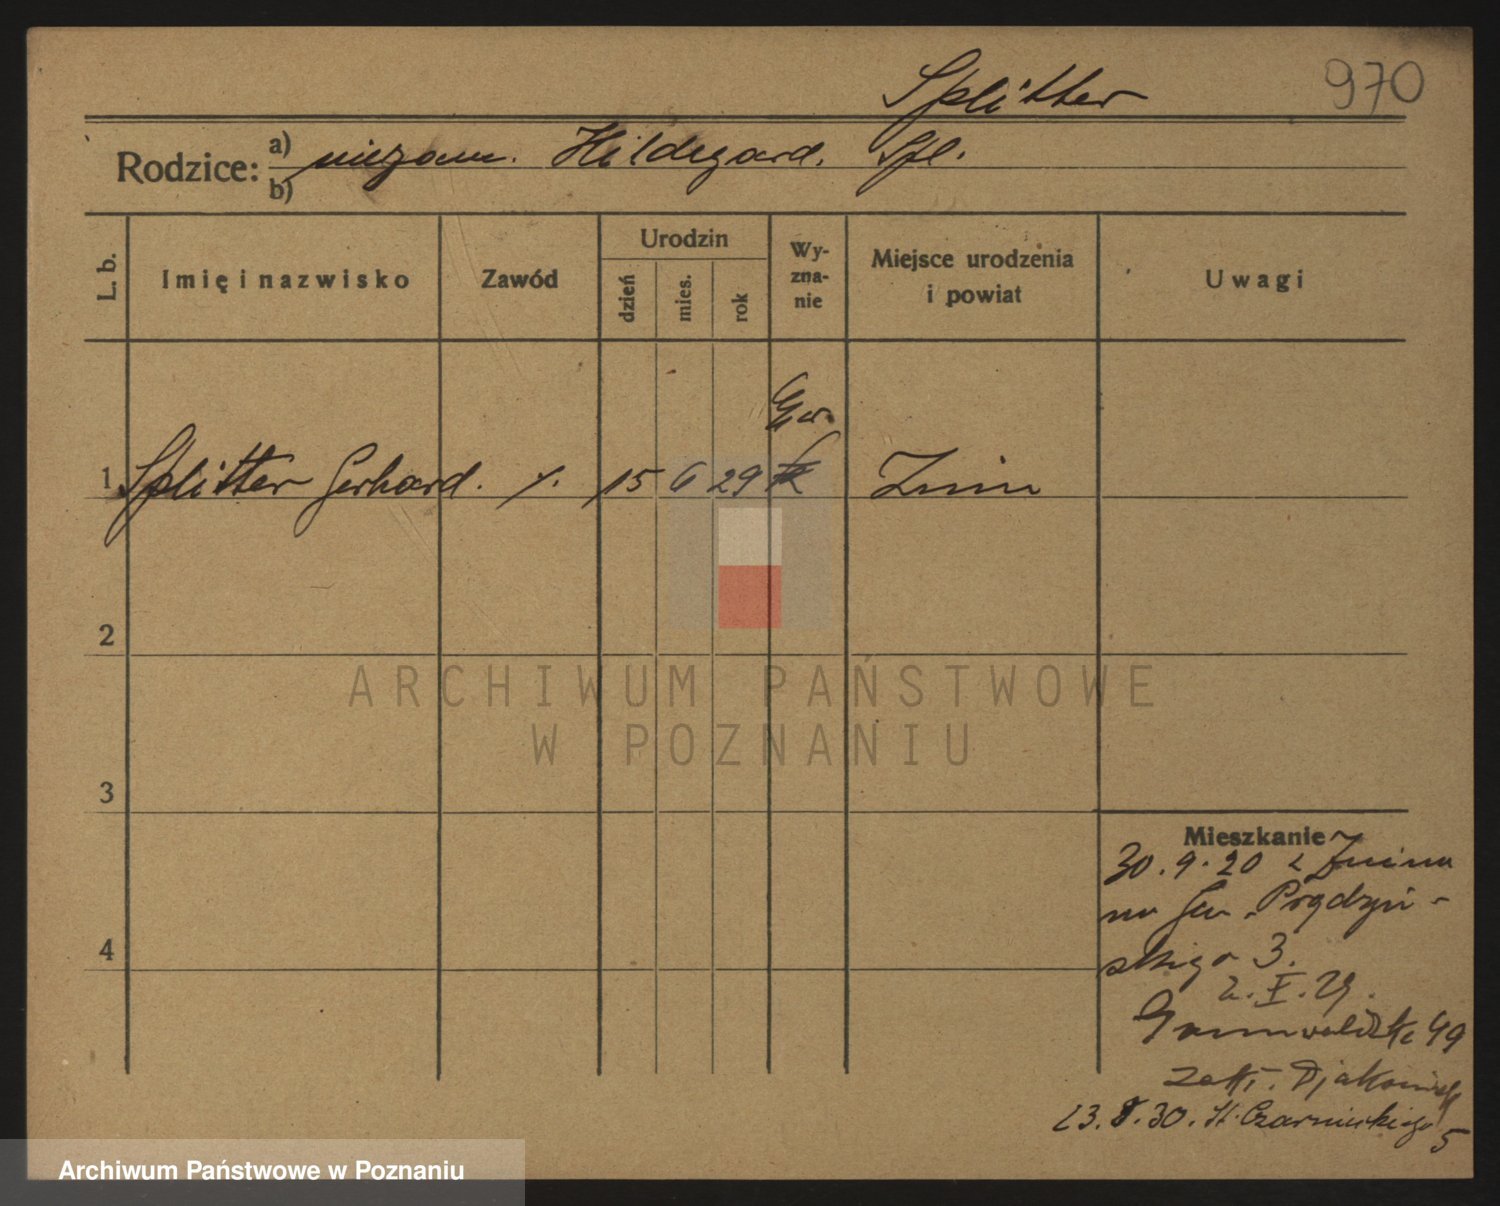 Splitter 970
Rodzice: a) niezam. Hildegard. Spl.
b)
L. b. Imię i nazwisko Zawód Urodzin dzień mies. rok Wyznanie Miejsce urodzenia i powiat Uwagi
Ew.
1 Splitter Gerhard. 15 6 29 Żnin
2
3
4
Mieszkanie
30.9.20 z Żnina
na Gen. Prądzyń-
skiego 3.
2.X.29.
Grunwaldzka 49
zakł. Djakonisek
23.8.30. St. Czarnieckiego 5
ARCHIWUM PAŃSTWOWE
W POZNANIU
Archiwum Państwowe w Poznaniu